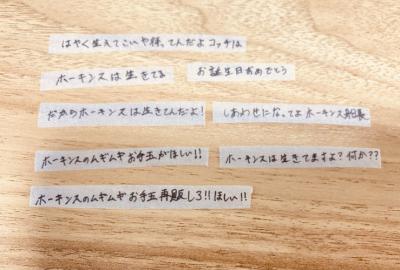 はやく生えてこいや様。てんだよコッチは
ホーキンスは生きてる
お誕生日おめでとう
だからホーキンスは生きてんだよ!
しあわせになってよホーキンス船長
ホーキンスのムギムギお手玉がほしい!!
ホーキンスは生きてますよ?何か??
ホーキンスのムギムギお手玉再販しろ!!ほしい!!